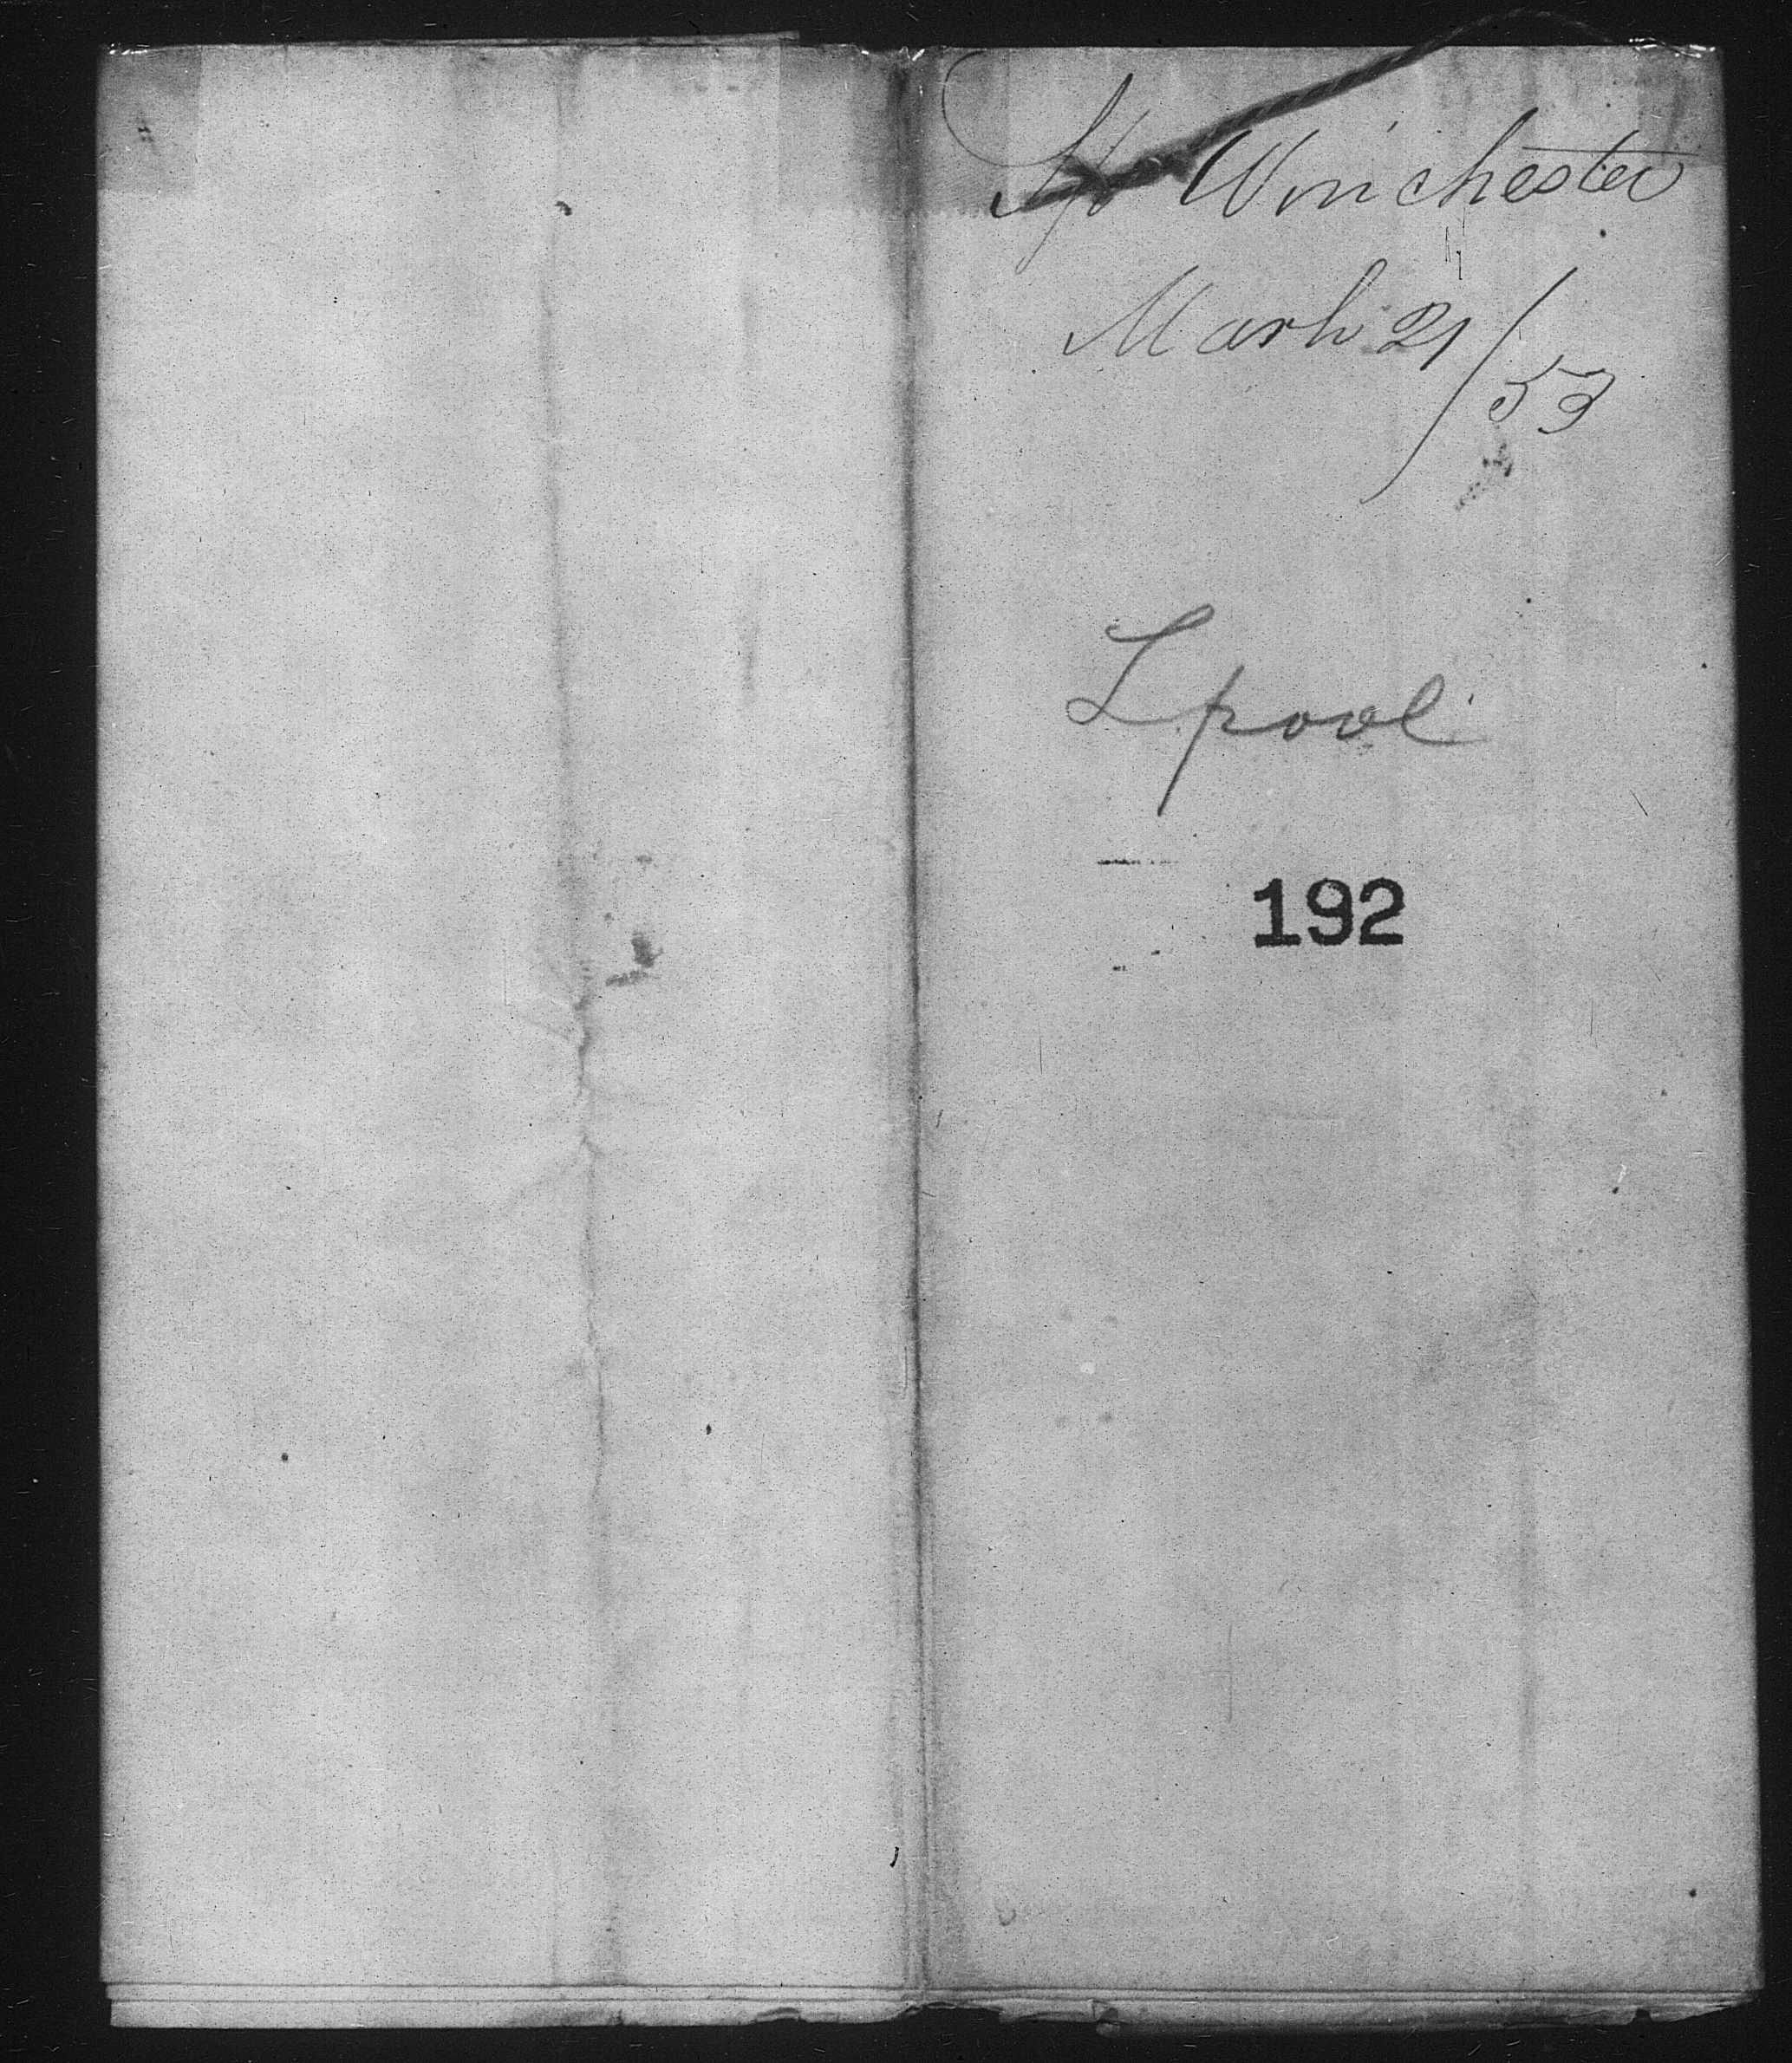 Sp Winchester
Marh 21/53
Lpool
192